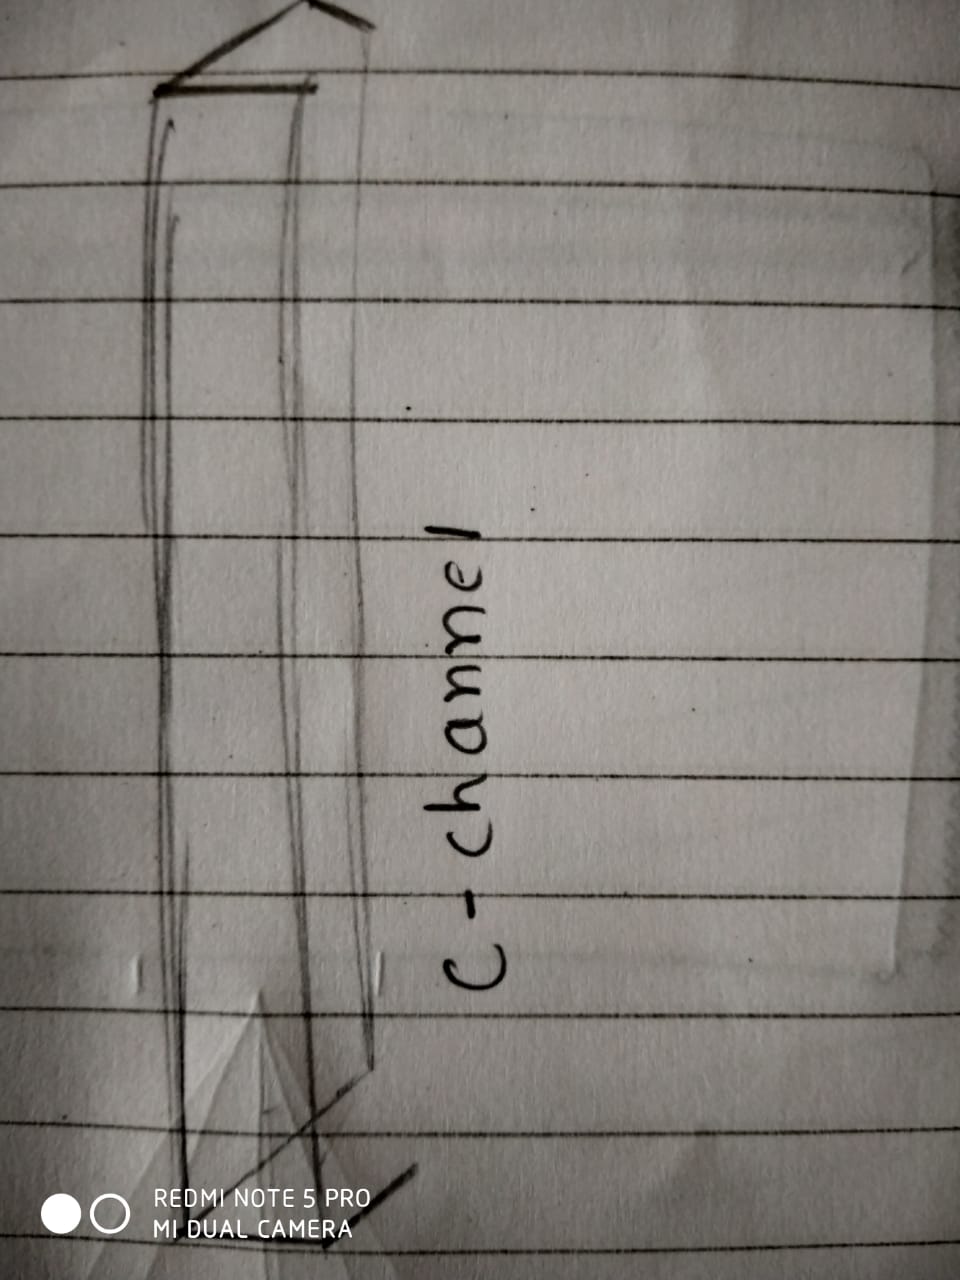 C - channel
REDMI NOTE 5 PRO
MI DUAL CAMERA